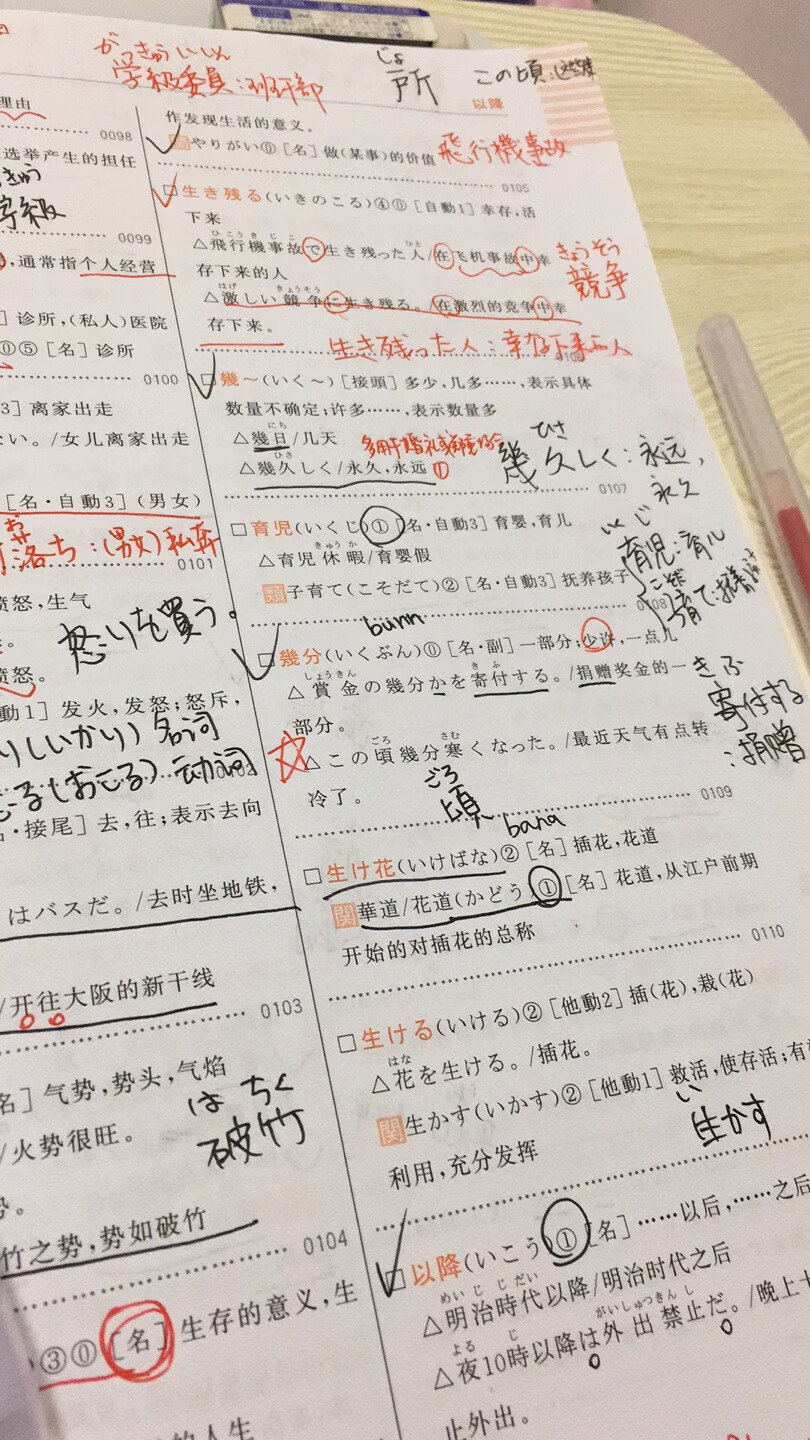 がっきゅういいん
学級委員：班干部
じょ
所
この頃：这些年
以降
理由
0098
选举产生的担任
0099
，通常指个人经营
］诊所，(私人)医院
⓪⑤［名］诊所
0100
3］离家出走
ない。/女儿离家出走
［名・自動3］(男女)
落ち：(男女)私奔
0101
愤怒，生气
怒りを買う。
愤怒。
動1］发火，发怒；怒斥，
りしいかり）名词
る（おこる）动词
・接尾］去，往；表示去向
はバスだ。/去时坐地铁，
/开往大阪的新干线
0103
名］气势，势头，气焰
はちく
破竹
/火势很旺。
势。
竹之势，势如破竹
0104
③⓪［名］生存的意义，生
的人生
作发现生活的意义。
やりがい⓪［名］做(某事)的价值
飛行機事故
0105
□生き残る(いきのこる)④⓪［自動1］幸存，活
下来
ひこうきじこ ひと
△飛行機事故で生き残った人/在飞机事故中幸
存下来的人
きょうそう
競争
はげ きょうそう
△激しい競争に生き残る。/在激烈的竞争中幸
存下来。
生き残った人：幸存下来的人
□幾～(いく～)［接頭］多少，几多……，表示具体
数量不确定；许多……，表示数量多
にち
△幾日/几天
ひさ
△幾久しく/永久，永远①
ひさ
幾久しく：永远，
永久
0107
□育児(いくじ)①［名・自動3］育婴，育儿
きゅうか
△育児休暇/育婴假
類子育て(こそだて)②［名・自動3］抚养孩子
いくじ
育児：育儿
0108
□幾分(いくぶん)⓪［名・副］一部分；少许，一点儿
しょうきん きふ
△賞金の幾分かを寄付する。/捐赠奖金的一
部分。
きふ
寄付する
：捐赠
ごろ さむ
△この頃幾分寒くなった。/最近天气有点转
冷了。
ごろ
頃
0109
bana
□生け花(いけばな)②［名］插花，花道
関華道/花道(かどう)①［名］花道，从江户前期
开始的对插花的总称
0110
□生ける(いける)②［他動2］插(花)，栽(花)
はな
△花を生ける。/插花。
関生かす(いかす)②［他動1］救活，使存活；有
利用，充分发挥
い
生かす
□以降(いこう)①［名］……以后，……之后
めいじじだい
△明治時代以降/明治时代之后
よる じ がいしゅつきんし
△夜10時以降は外出禁止だ。/晚上十
止外出。